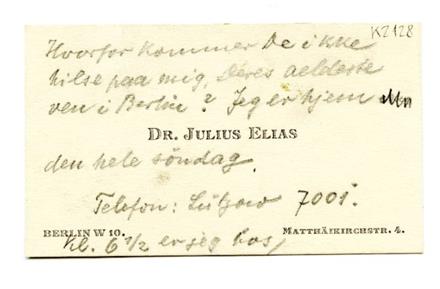 K2128
Hvorfor kommer De ikke
hilse paa mig, Deres aeldeste
ven i Berlin? Jeg er hjem
DR. JULIUS ELIAS
den hele söndag.
Telefon: Lützow 7001.
BERLIN W 10. MATTHÄIKIRCHSTR. 4.
Kl. 6 1/2 er jeg hos